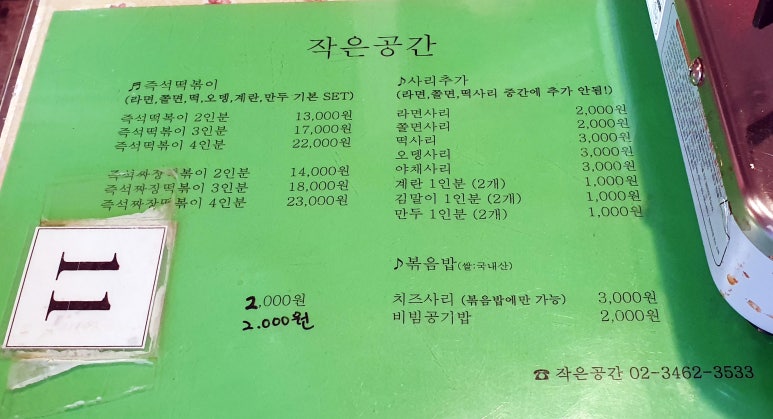 작은공간
♬즉석떡볶이
(라면,쫄면,떡,오뎅,계란,만두 기본 SET)
즉석떡볶이 2인분 13,000원
즉석떡볶이 3인분 17,000원
즉석떡볶이 4인분 22,000원
즉석짜장떡볶이 2인분 14,000원
즉석짜장떡볶이 3인분 18,000원
즉석짜장떡볶이 4인분 23,000원
11
2,000원
2.000원
♪사리추가
(라면,쫄면,떡사리 중간에 추가 안됨!)
라면사리 2,000원
쫄면사리 2,000원
떡사리 3,000원
오뎅사리 3,000원
야채사리 3,000원
계란 1인분 (2개) 1,000원
김말이 1인분 (2개) 1,000원
만두 1인분 (2개) 1,000원
♪볶음밥(쌀:국내산)
치즈사리 (볶음밥에만 가능) 3,000원
비빔공기밥 2,000원
☎ 작은공간 02-3462-3533